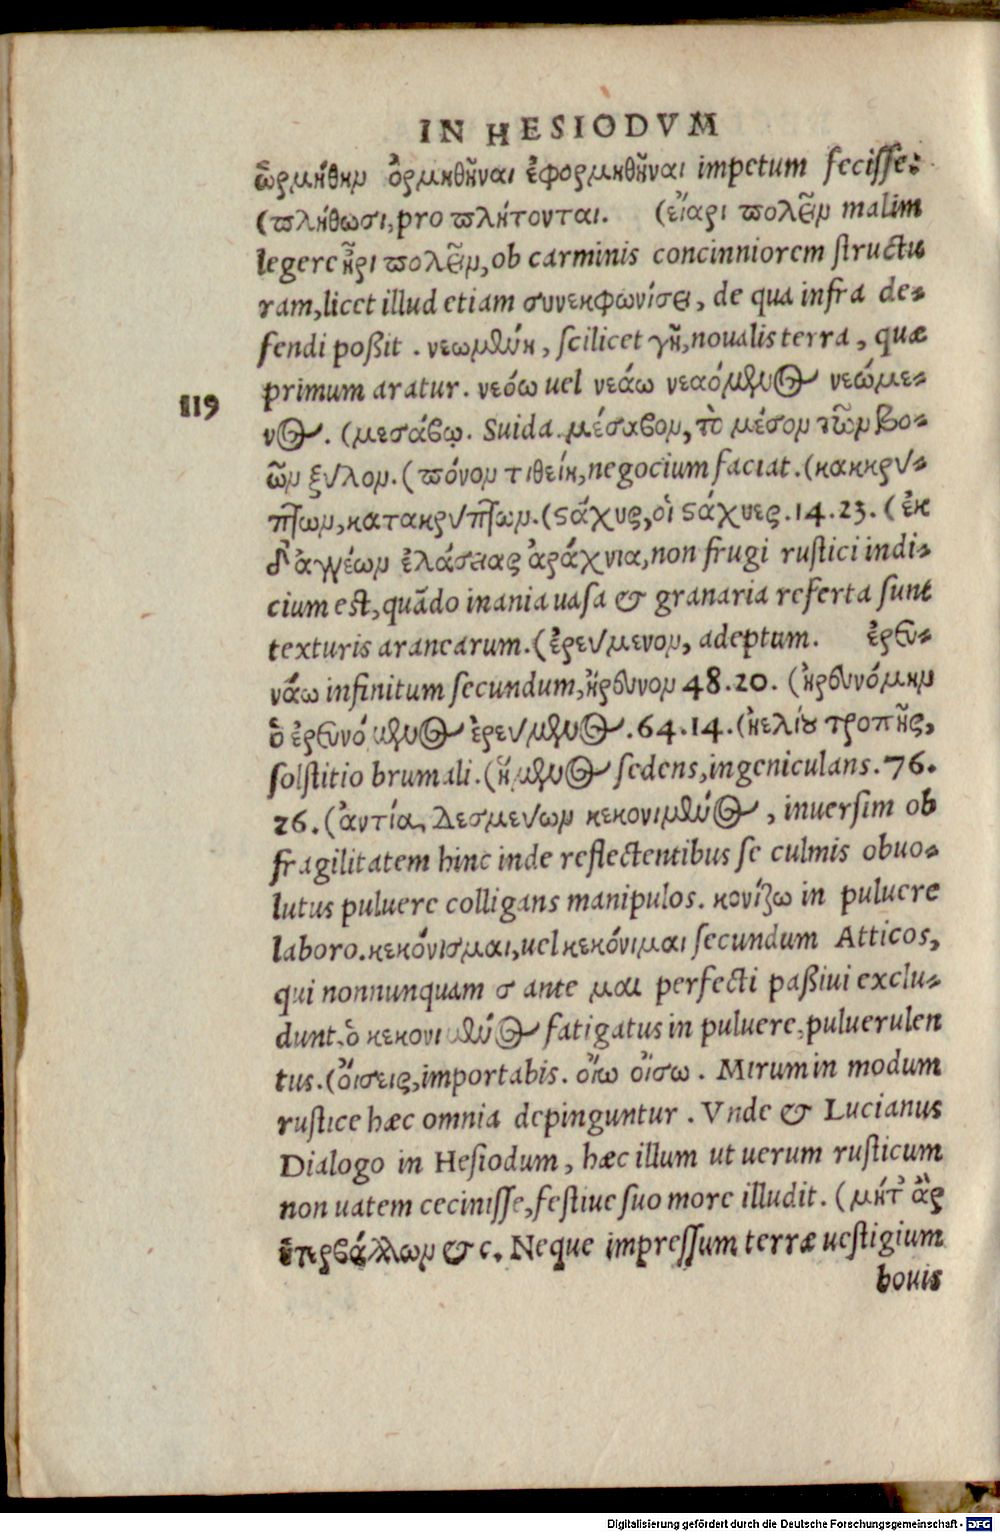 IN HESIODVM
ὥρμήθην ὁρμηθῆναι ἐφορμηθῆναι impetum fecisse.
(πλήθωσι, pro πλήτονται. (εἴαρι πολεῖν malim
legere ἦρι πολεῖν, ob carminis concinniorem structu
ram, licet illud etiam συνεκφωνίσει, de qua infra de-
fendi poßit . νεωμένη, scilicet γῆ, noualis terra, quæ
primum aratur. νεόω uel νεάω νεαόμενος νεώμε-
119
νος. (μεσάβῳ. Suida. μέσαβον, τὸ μέσον τῶν βο-
ῶν ξύλον. (πόνον τιθείη, negocium faciat. (κακκρύ-
πτων, κατακρύπτων. (στάχυς, οἱ στάχυες. 14. 23. (ἐκ
δ' ἀγγέων ἐλάσειας ἀράχνια, non frugi rustici indi-
cium est, quãdo inania uasa & granaria referta sunt
texturis aranearum. (ἐρεύμενον, adeptum. ἐρευ-
νάω infinitum secundum, ἤρευνον 48. 20. (ἠρευνόμην
ὁ ἐρευνόμενος ἐρεύμενος. 64. 14. (ἠελίου τροπῆς,
solstitio brumali. (ἥμενος sedens, ingeniculans. 76.
26. (ἀντία δεσμεύων κεκονιμένος, inuersim ob
fragilitatem hinc inde reflectentibus se culmis obuo-
lutus puluere colligans manipulos. κονίζω in puluere
laboro. κεκόνισμαι, uel κεκόνιμαι secundum Atticos,
qui nonnunquam σ ante μαι perfecti paßiui exclu-
dunt. ὁ κεκονιμένος fatigatus in puluere, puluerulen
tus. (ὄισεις, importabis. οἴω οἴσω. Mirum in modum
rustice hæc omnia depinguntur. Vnde & Lucianus
Dialogo in Hesiodum, hæc illum ut uerum rusticum
non uatem cecinisse, festiue suo more illudit. (μήτ' ἂρ
ὑπερβάλλων & c. Neque impressum terræ uestigium
bouis
Digitalisierung gefördert durch die Deutsche Forschungsgemeinschaft - DFG